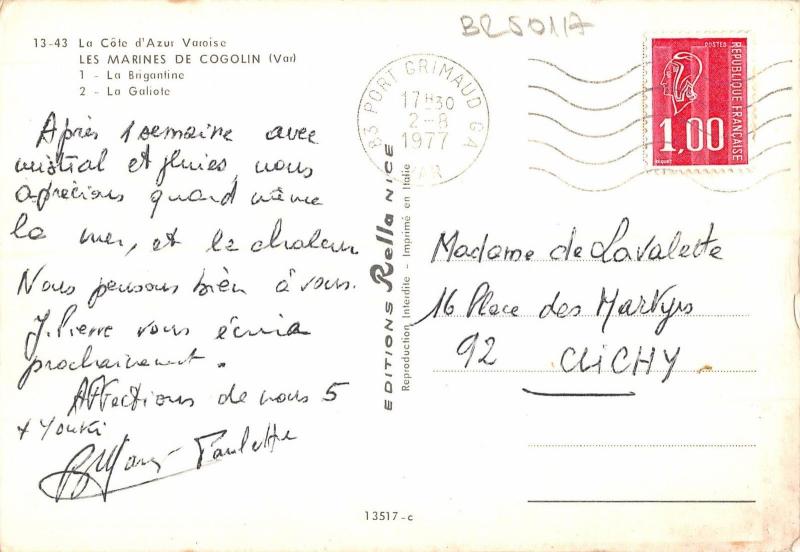 BR5011A
13-43 La Côte d'Azur Varoise
LES MARINES DE COGOLIN (Var)
1 - La Brigantine
2 - La Galiote
Après 1 semaine avec
mistral et pluies, nous
aprécions quand même
la mer, et la chaleur
Nous pensons bien à vous.
J. Pierre vous écrira
prochainement.
Affections de nous 5
+ Youki
Paulette
83 PORT GRIMAUD G A
17H30
2-8
1977
VAR
POSTES
REPUBLIQUE FRANÇAISE
1,00
BEQUET
EDITIONS Rella NICE
Reproduction Interdite - Imprimé en Italie
Madame de Lavalette
16 Place des Martyrs
92 CLICHY
13517-c